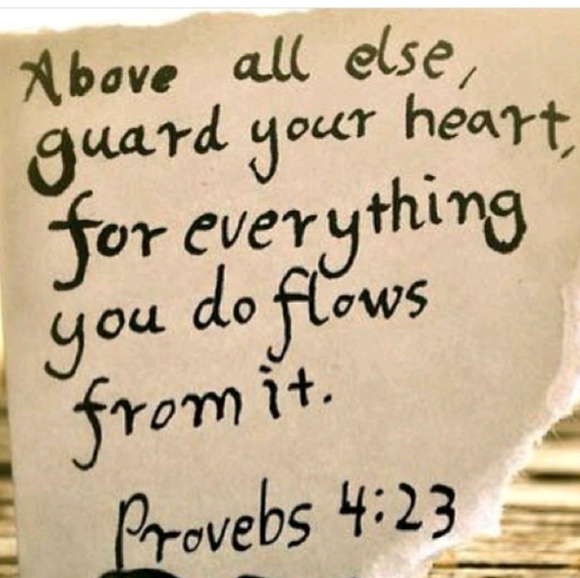 Above all else,
guard your heart,
for everything
you do flows
from it.
Provebs 4:23